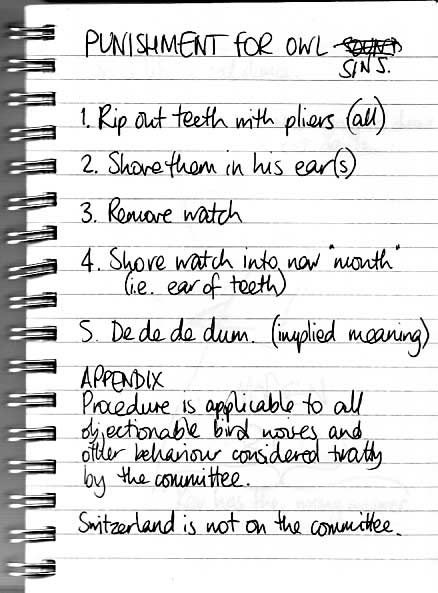 PUNISHMENT FOR OWL
SINS.
1. Rip out teeth with pliers (all)
2. Shove them in his ear(s)
3. Remove watch
4. Shove watch into new "mouth"
(i.e. ear of teeth)
5. De de de dum. (implied meaning)
APPENDIX
Procedure is applicable to all
objectionable bird noises and
other behaviour considered twatty
by the committee.
Switzerland is not on the committee.